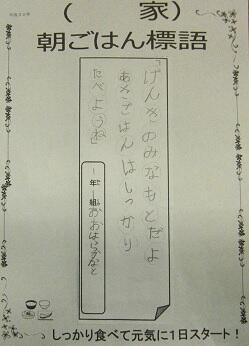 (　　家)
朝ごはん標語
「げんきのみなもとだよ
あさごはんはしっかり
たべようね」
一年一組おおはらかなと
しっかり食べて元気に1日スタート!